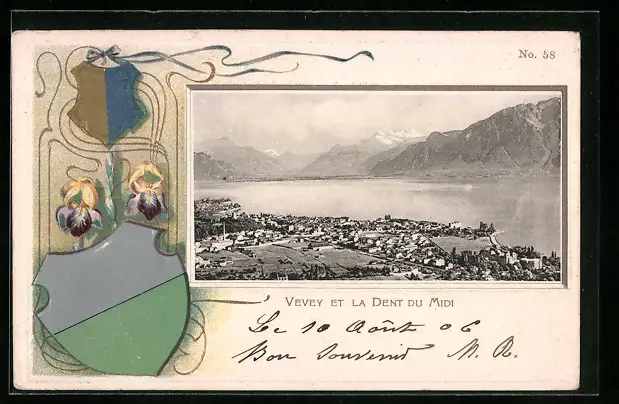 No. 58
VEVEY ET LA DENT DU MIDI
Le 10 Août 06
Bon Souvenir M. R.